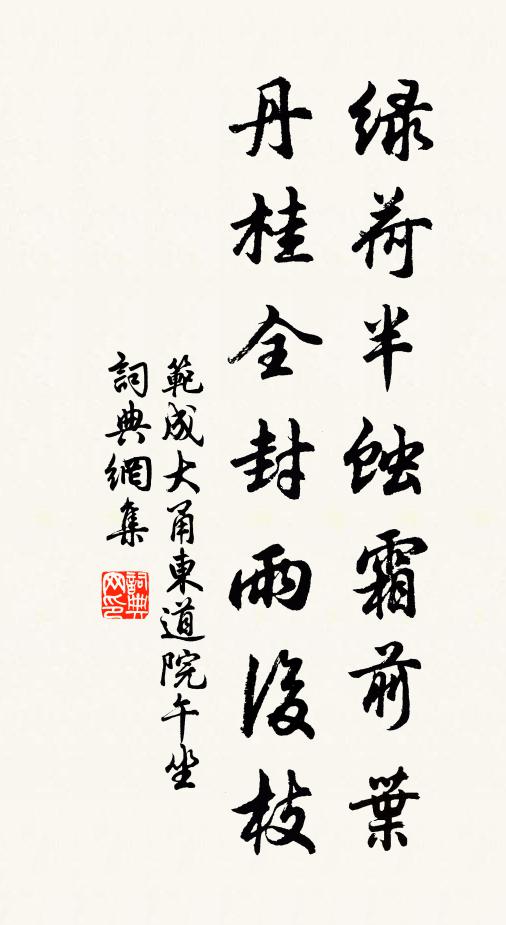 绿荷半蝕霜前葉
丹桂全封雨後枝
範成大甬東道院午坐
詞典網集
詞典网印